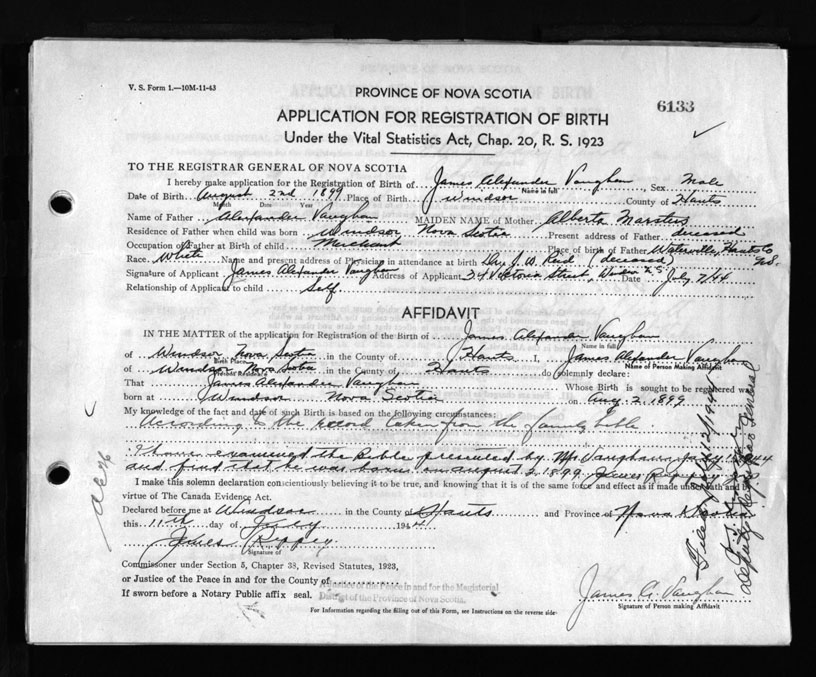 V. S. Form 1.—10M-11-43
PROVINCE OF NOVA SCOTIA
6133
APPLICATION FOR REGISTRATION OF BIRTH
Under the Vital Statistics Act, Chap. 20, R. S. 1923
TO THE REGISTRAR GENERAL OF NOVA SCOTIA
I hereby make application for the Registration of Birth of James Alexander Vaughan, Sex Male
Name in full
Date of Birth August 2nd 1899 Place of Birth Windsor County of Hants
Month Date Year
Name of Father Alexander Vaughan MAIDEN NAME of Mother Alberta Marsters
Residence of Father when child was born Windsor Nova Scotia Present address of Father deceased
Occupation of Father at Birth of child Merchant Place of birth of Father Waterville, Hants Co N.S.
Race White Name and present address of Physician in attendance at birth Dr. J. W. Reid (deceased)
Signature of Applicant James Alexander Vaughan Address of Applicant 34 Victoria Street, Windsor N.S. Date July 7/44
Relationship of Applicant to child Self.
AFFIDAVIT
IN THE MATTER of the application for Registration of the Birth of James Alexander Vaughan
Name in full
of Windsor Nova Scotia in the County of Hants I, James Alexander Vaughan
Birth Place Name of Person Making Affidavit
of Windsor Nova Scotia in the County of Hants do solemnly declare:
Present Residence
That James Alexander Vaughan Whose Birth is sought to be registered was
born at Windsor Nova Scotia on Aug. 2, 1899.
My knowledge of the fact and date of such Birth is based on the following circumstances:
According to the record taken from the family bible
I have examined the Bible presented by Mr. Vaughan, July 1944
and find that he was born on August 2 1899.
I make this solemn declaration conscientiously believing it to be true, and knowing that it is of the same force and effect as if made under oath and by
virtue of The Canada Evidence Act.
Declared before me at Windsor in the County of Hants and Province of Nova Scotia
this 11th day of July 1944
James
Signature of
Commissioner under Section 5, Chapter 38, Revised Statutes, 1923,
or Justice of the Peace in and for the County of
Justice of the Peace in and for the Magisterial
If sworn before a Notary Public affix seal.
District of the Province of Nova Scotia.
James A. Vaughan
Signature of Person making Affidavit
For Information regarding the filling out of this Form, see Instructions on the reverse side
Filed July 12/1944
Deputy Registrar General